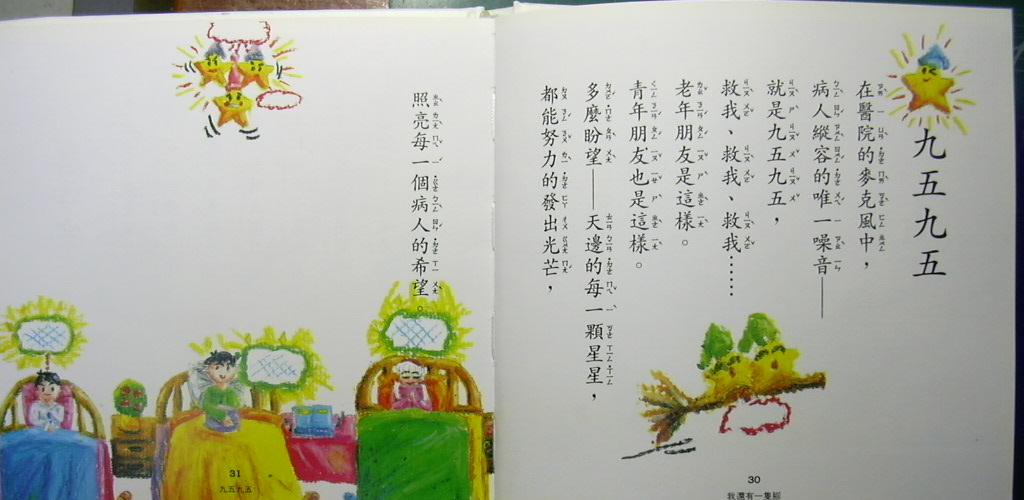 九五九五
在醫院的麥克風中，
病人縱容的唯一噪音——
就是九五九五，
救我、救我、救我……
老年朋友是這樣。
青年朋友也是這樣。
多麼盼望——天邊的每一顆星星，
都能努力的發出光芒，
照亮每一個病人的希望。
30
我還有一隻腳
31
九五九五